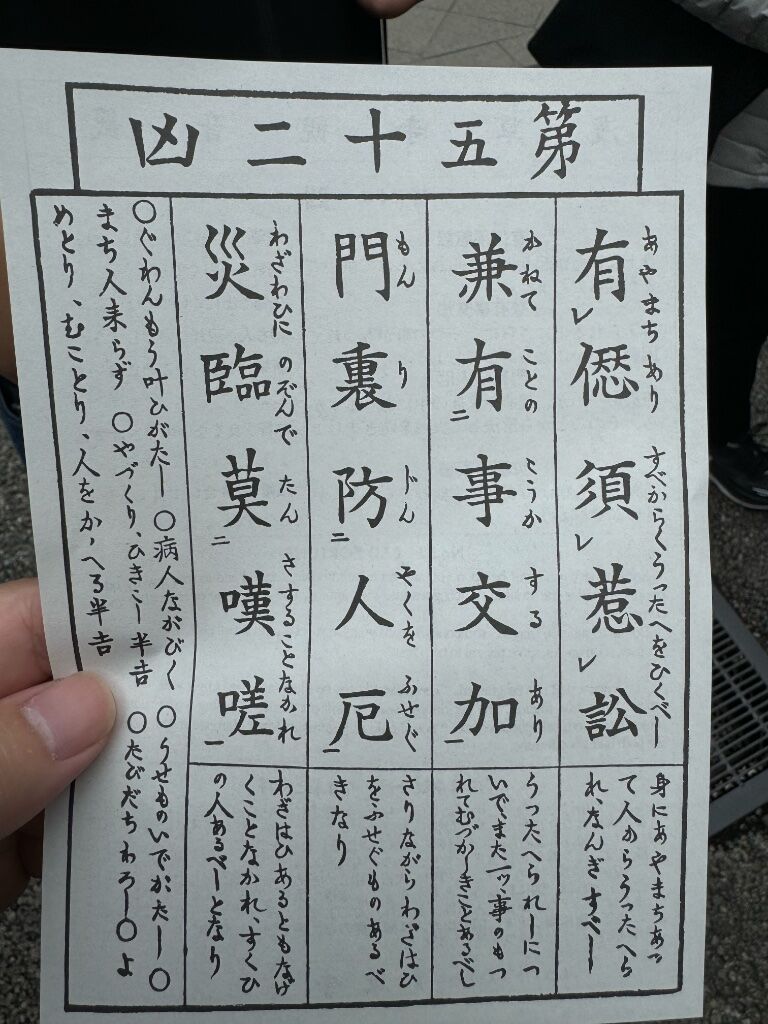 第五十二凶
有愆須惹訟
あやまちあり すべからくうったへをひくべー
レ レ レ
身にあやまちあッ
て人からうったへら
れ、なんぎすべー
兼有事交加
かねて ことの こうか する あり
二 一
うったへられーにつ
いでまた一ッ事のもつ
れてむづかーきことあるべし
門裏防人厄
もん り ドん やくを ふせぐ
二 一
さりながらわざはひ
をふせぐものあるべ
きなり
災臨莫嘆嗟
わざわひに のぞんで たん さすることなかれ
二 一
わざはひあるともなげ
くことなかれ、すくひ
の人あるべーとなり
〇ぐわんもう叶ひがたー 〇病人ながびく 〇うせものいでがたー 〇
まち人来らず 〇やづくり、ひきこー半吉 〇たびだちわろー 〇よ
めとり、むことり、人をかゝへる半吉